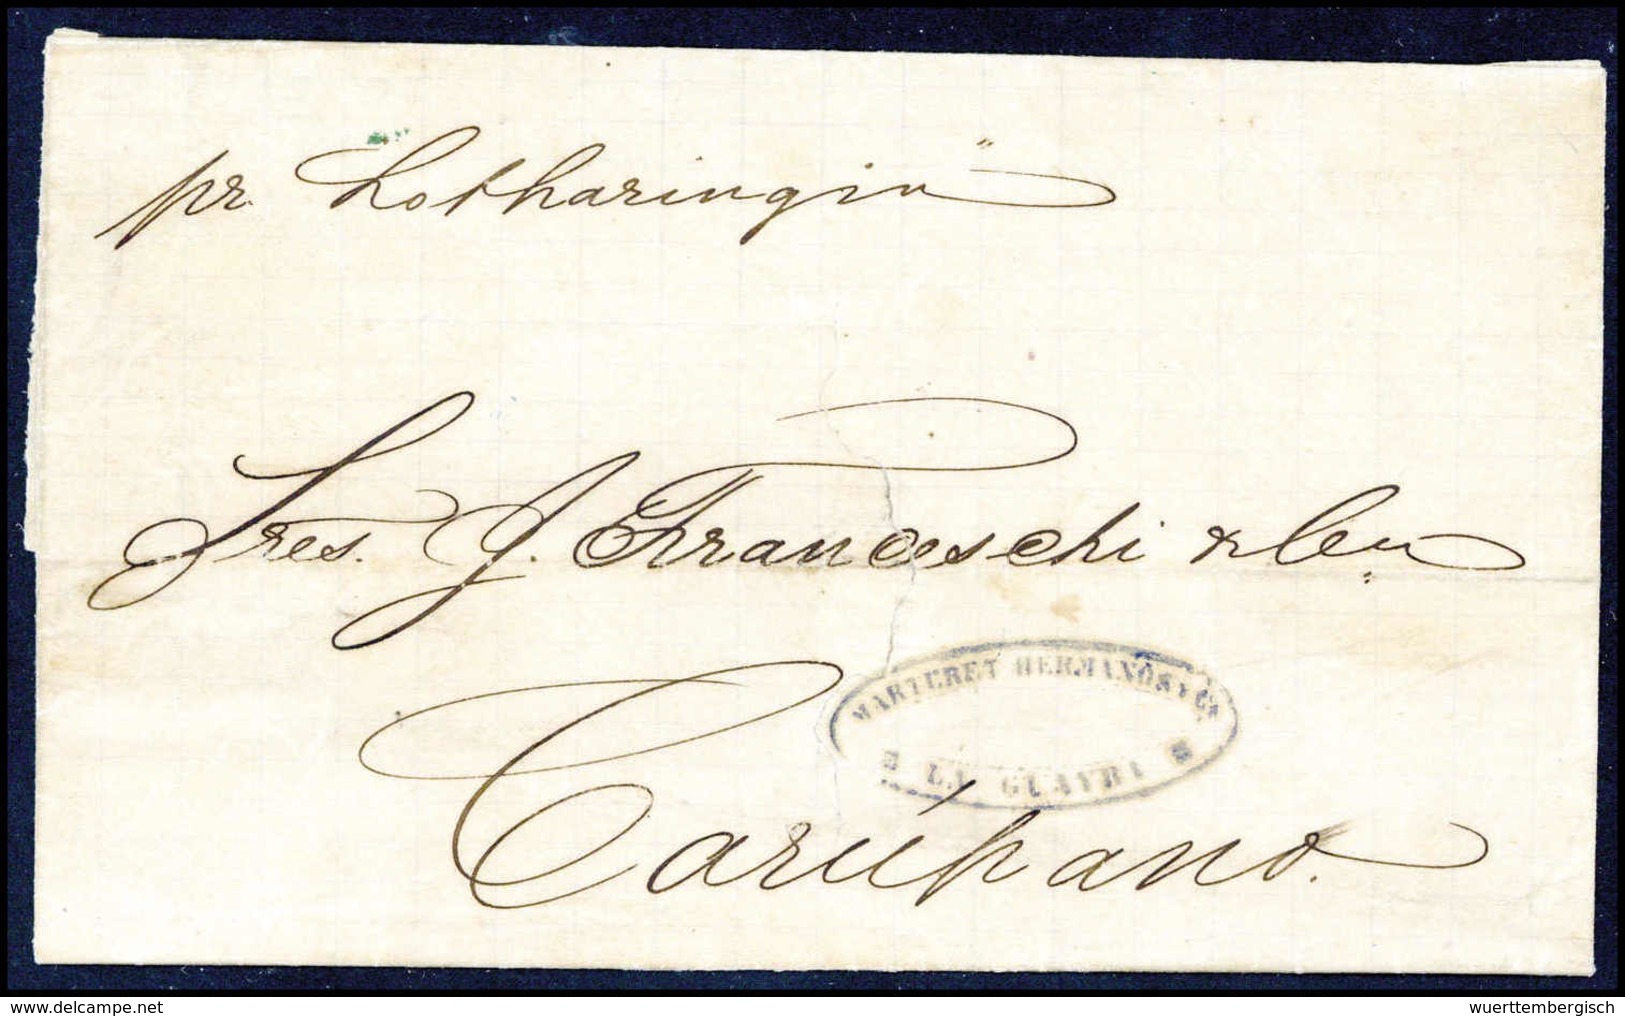 pr. Lotharingia"
Sres. J. Franceschi & Ca.
MARTERET HERMANOS Y Ca
LA GUAYRA
Carúpano.
www.delcampe.net
wuerttembergisch